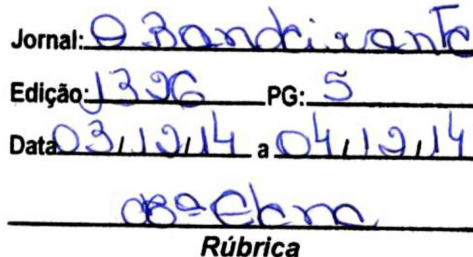 Jornal: O Bandeirante
Edição: 1396 PG: 5
Data 03/12/14 a 04/12/14
Rúbrica